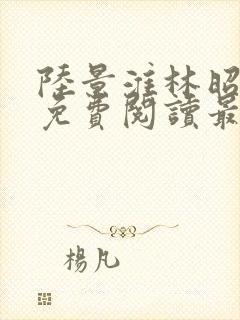 陸景淮林昭
免費閱讀最
楊凡